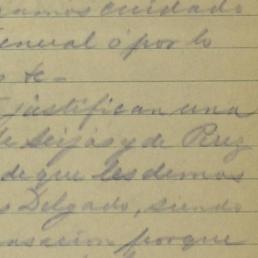 ramos cuidado
General ó por lo
s te-
justifican una
de Seijas y de Perez
de que les demos
s Delgado, siendo
ansacion porque